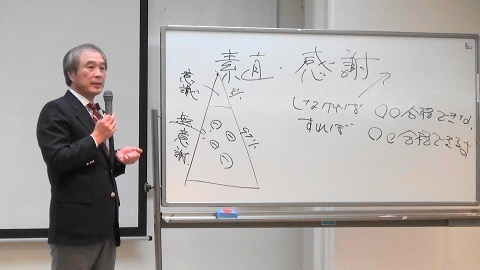 素直・感謝
意識
5%
無意識
95%
しなければ ○○合格できない
すれば ○○合格できる